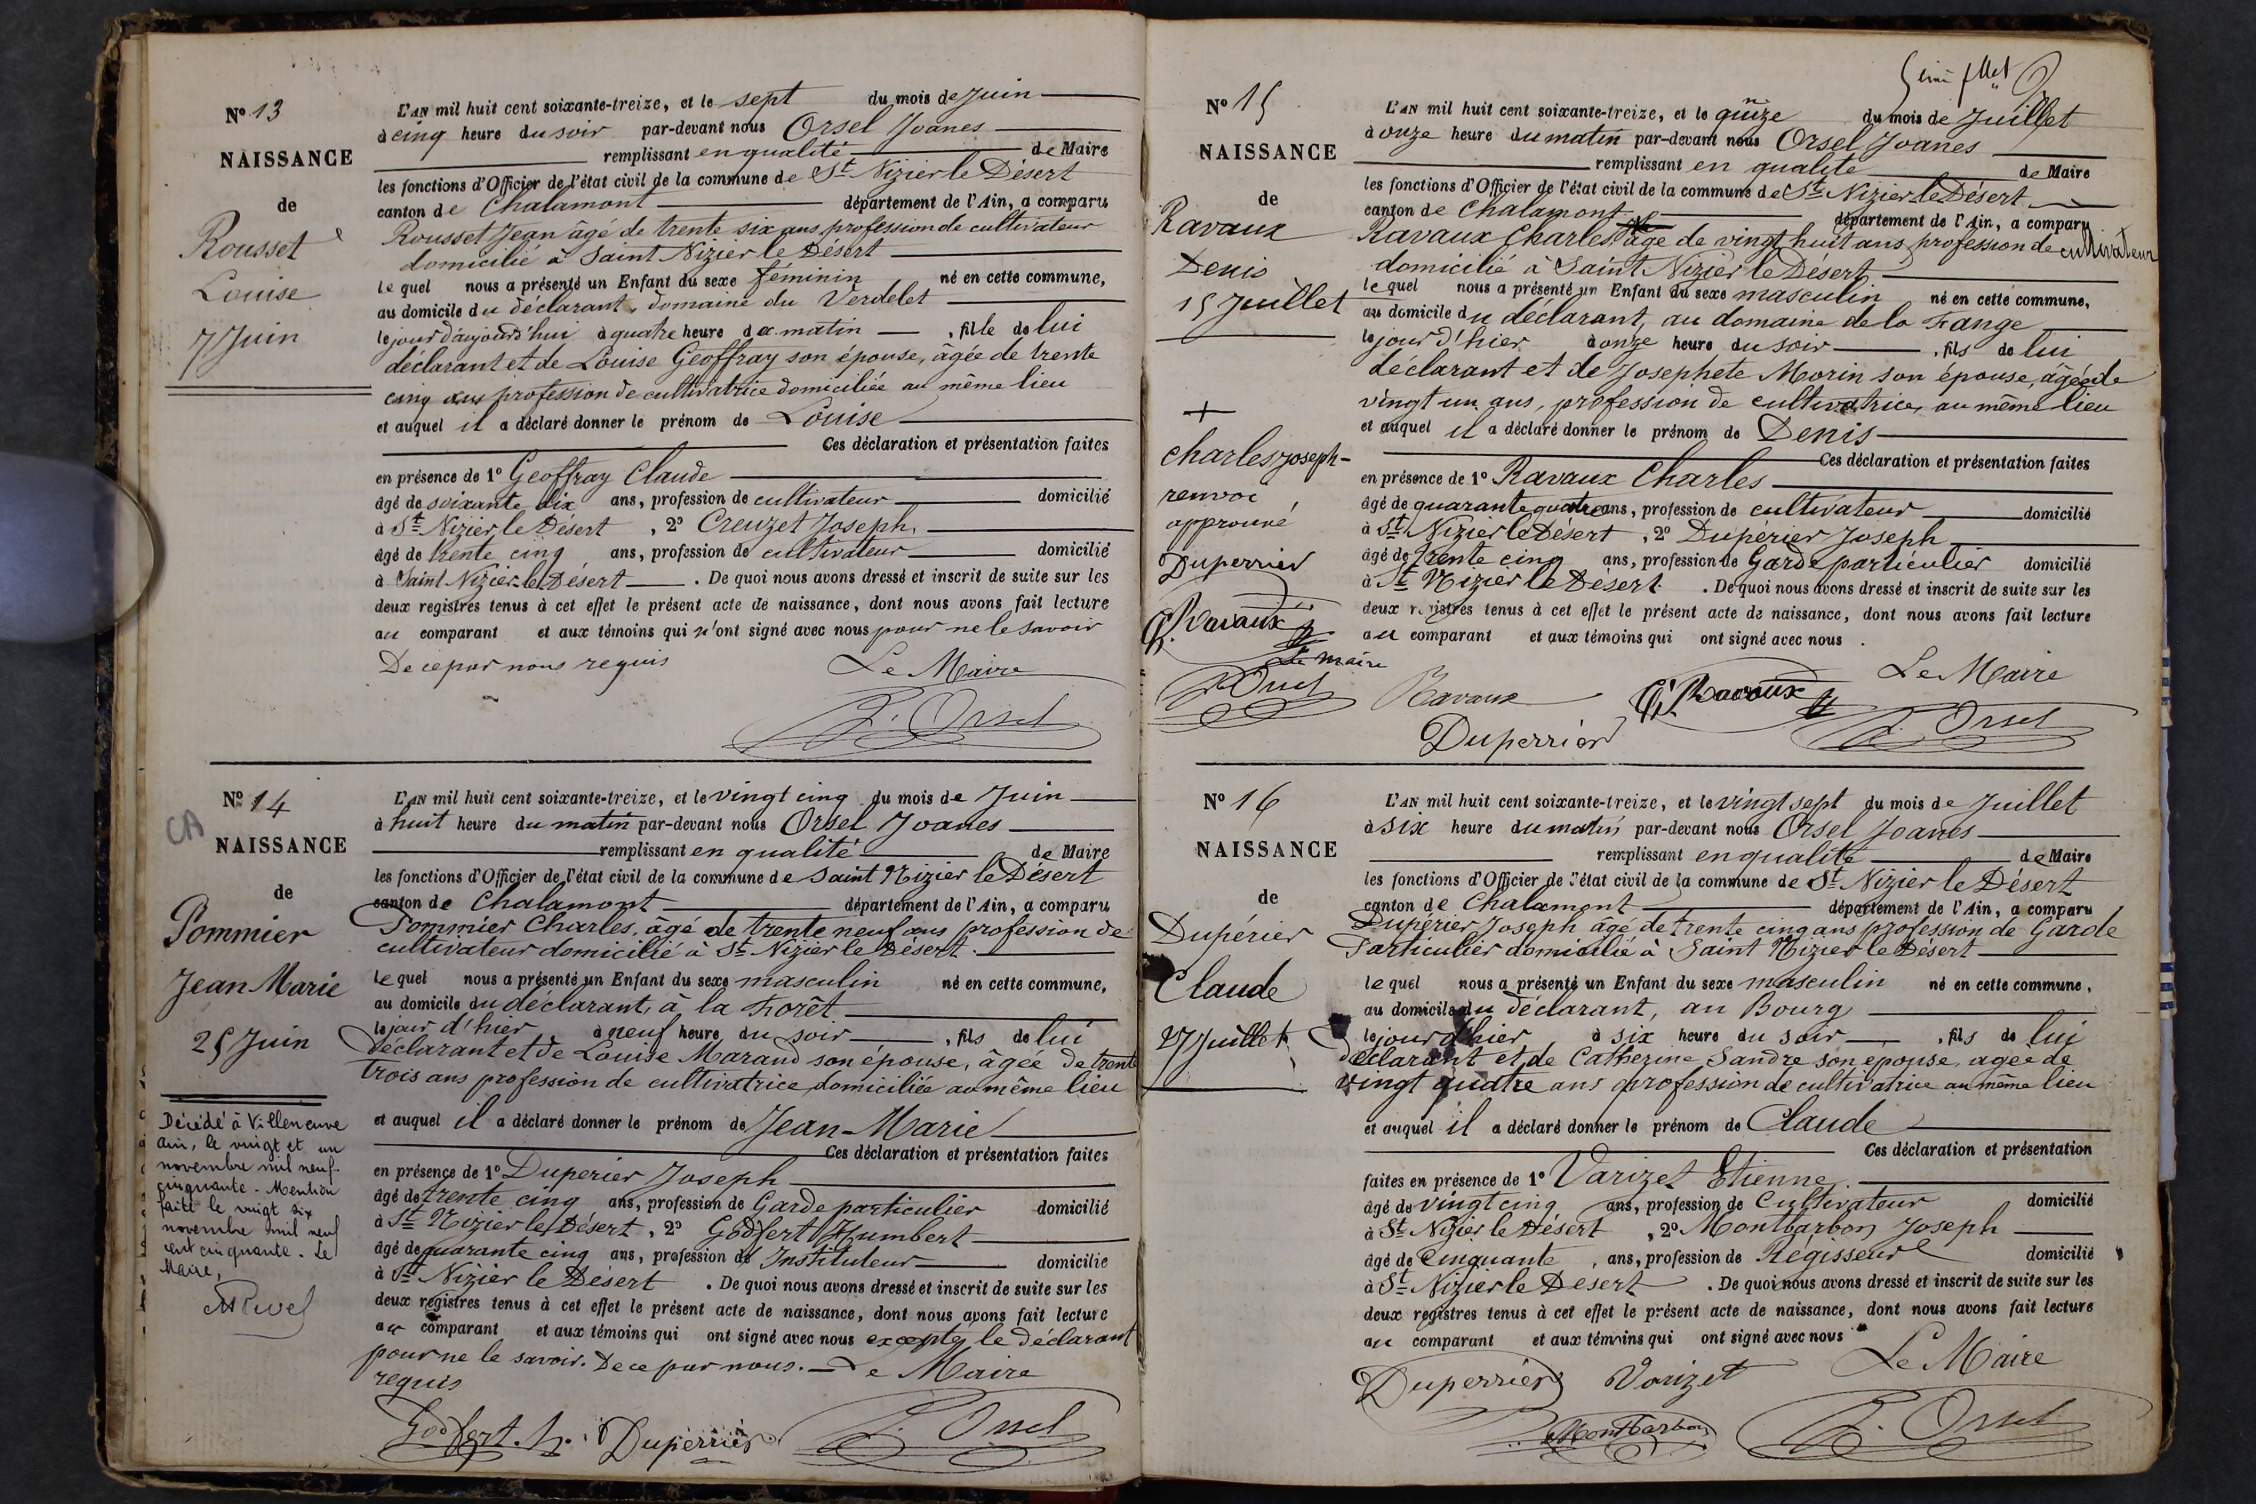 Nº 13
NAISSANCE
de
Rousset
Louise
7 Juin
L'AN mil huit cent soixante-treize, et le sept du mois de Juin
à cinq heure du soir par-devant nous Orsel Joanes
remplissant en qualité de Maire
les fonctions d'Officier de l'état civil de la commune de St Nizier le Désert
canton de Chalamont département de l'Ain, a comparu
Rousset Jean âgé de trente six ans, profession de cultivateur
domicilié à Saint Nizier le Désert
le quel nous a présenté un Enfant du sexe féminin né en cette commune,
au domicile du déclarant, domaine du Verdelet
le jour d'aujourd'hui à quatre heure du matin , fille de lui
déclarant et de Louise Geoffray son épouse, âgée de trente
cinq ans profession de cultivatrice domiciliée au même lieu
et auquel il a déclaré donner le prénom de Louise
Ces déclaration et présentation faites
en présence de 1º Geoffray Claude
âgé de soixante dix ans, profession de cultivateur domicilié
à St Nizier le Désert , 2º Creuzet Joseph,
âgé de trente cinq ans, profession de cultivateur domicilié
à Saint Nizier le Désert . De quoi nous avons dressé et inscrit de suite sur les
deux registres tenus à cet effet le présent acte de naissance, dont nous avons fait lecture
au comparant et aux témoins qui n'ont signé avec nous pour ne le savoir
De ce par nous requis Le Maire
J. Orsel
Nº 14
CA
NAISSANCE
de
Pommier
Jean Marie
25 Juin
Décédé à Villeneuve
ain, le vingt et un
novembre mil neuf
cinquante. Mention
faite le vingt six
novembre mil neuf
cent cinquante. Le
Maire,
L'AN mil huit cent soixante-treize, et le vingt cinq du mois de Juin
à huit heure du matin par-devant nous Orsel Joanes
remplissant en qualité de Maire
les fonctions d'Officier de l'état civil de la commune de Saint Nizier le Désert
canton de Chalamont département de l'Ain, a comparu
Pommier Charles, âgé de trente neuf ans profession de
cultivateur domicilié à St Nizier le Désert.
le quel nous a présenté un Enfant du sexe masculin né en cette commune,
au domicile du déclarant, à la Forêt
le jour d'hier à neuf heure du soir , fils de lui
déclarant et de Louise Marand son épouse, âgée de trente
trois ans profession de cultivatrice domiciliée au même lieu
et auquel il a déclaré donner le prénom de Jean-Marie
Ces déclaration et présentation faites
en présence de 1º Duperier Joseph
âgé de trente cinq ans, profession de Garde particulier domicilié
à St Nizier le Désert, 2º Godfert Humbert
âgé de quarante cinq ans, profession de Instituteur domicilié
à St Nizier le Désert . De quoi nous avons dressé et inscrit de suite sur les
deux registres tenus à cet effet le présent acte de naissance, dont nous avons fait lecture
au comparant et aux témoins qui ont signé avec nous excepté le déclarant
pour ne le savoir. De ce par nous. Le Maire
requis
Godfert. h. Duperrier J. Orsel
Nº 15
NAISSANCE
de
Ravaux
Denis
15 Juillet
+
Charles Joseph
renvoi
approuvé
Duperrier
C. Ravaux
Le maire
J. Orsel
L'AN mil huit cent soixante-treize, et le quinze du mois de Juillet
à onze heure du matin par-devant nous Orsel Joanes
remplissant en qualité de Maire
les fonctions d'Officier de l'état civil de la commune de St Nizier le Désert
canton de Chalamont département de l'Ain, a comparu
Ravaux Charles âgé de vingt huit ans, profession de cultivateur
domicilié à Saint Nizier le Désert
le quel nous a présenté un Enfant du sexe masculin né en cette commune,
au domicile du déclarant, au domaine de la Fange
le jour d'hier à onze heure du soir , fils de lui
déclarant et de Josephete Morin son épouse, âgée de
vingt un ans, profession de cultivatrice, au même lieu
et auquel il a déclaré donner le prénom de Denis
Ces déclaration et présentation faites
en présence de 1º Ravaux Charles
âgé de quarante quatre ans, profession de cultivateur domicilié
à St Nizier le Désert , 2º Dupérier Joseph
âgé de trente cinq ans, profession de Garde particulier domicilié
à St Nizier le Désert . De quoi nous avons dressé et inscrit de suite sur les
deux registres tenus à cet effet le présent acte de naissance, dont nous avons fait lecture
au comparant et aux témoins qui ont signé avec nous .
Le Maire
Ravaux C. Ravaux
Duperrier J. Orsel
Nº 16
NAISSANCE
de
Dupérier
Claude
27 Juillet
L'AN mil huit cent soixante-treize, et le vingt sept du mois de Juillet
à six heure du matin par-devant nous Orsel Joanes
remplissant en qualité de Maire
les fonctions d'Officier de l'état civil de la commune de St Nizier le Désert
canton de Chalamont département de l'Ain, a comparu
Dupérier Joseph âgé de trente cinq ans profession de Garde
Particulier domicilié à Saint Nizier le Désert
le quel nous a présenté un Enfant du sexe masculin né en cette commune,
au domicile du déclarant, au Bourg
le jour d'hier à six heure du soir , fils de lui
déclarant et de Catherine Sandre son épouse, agée de
vingt quatre ans profession de cultivatrice au même lieu
et auquel il a déclaré donner le prénom de Claude
Ces déclaration et présentation
faites en présence de 1º Varizet Etienne
âgé de vingt cinq ans, profession de Cultivateur domicilié
à St Nizier le Désert , 2º Montbarbon Joseph
âgé de Cinquante , ans, profession de Regisseur domicilié
à St Nizier le Desert . De quoi nous avons dressé et inscrit de suite sur les
deux registres tenus à cet effet le présent acte de naissance, dont nous avons fait lecture
au comparant et aux témoins qui ont signé avec nous
Le Maire
Duperrier Varizet
Montbarbon J. Orsel